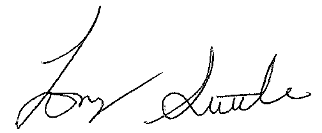 Tony Suttle